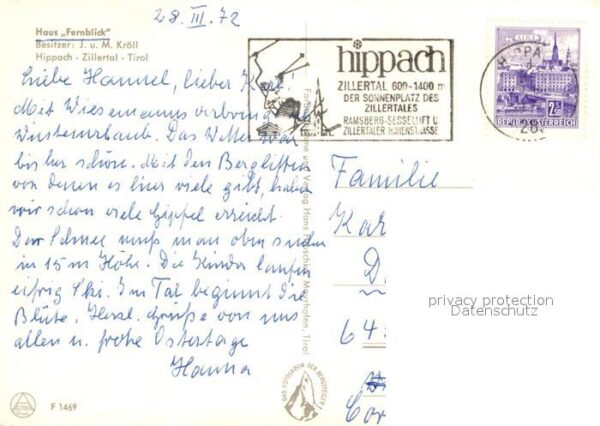 28. III. 72
Haus „Fernblick"
Besitzer: J. u. M. Kröll
Hippach - Zillertal - Tirol
Liebe Hannel, lieber Karl.
Mit Wiesemanns verbringen
Winterurlaub. Das Wetter war
bis her schön. Mit den Bergliften
von denen es hier viele gibt, haben
wir schon viele Gipfel erreicht.
Den Schnee muß man oben suchen
in 15 m Höhe. Die Kinder laufen
eifrig Ski. Im Tal beginnt die
Blüte. Herzl. Grüße von uns
allen u. frohe Ostertage
Hanna
F 1469
hippach
ZILLERTAL 600-1400 m
DER SONNENPLATZ DES
ZILLERTALES
RAMSBERG-SESSELLIFT U.
ZILLERTALER HÖHENSTRASSE
LINZ
2.50
REPUBLIK ÖSTERREICH
28.
Verlag Hans Mayrhofen, Tirol
DAS FOTOLABOR DER BERGSTEIGER
Familie
Kar
D
64
Cor
privacy protection
Datenschutz